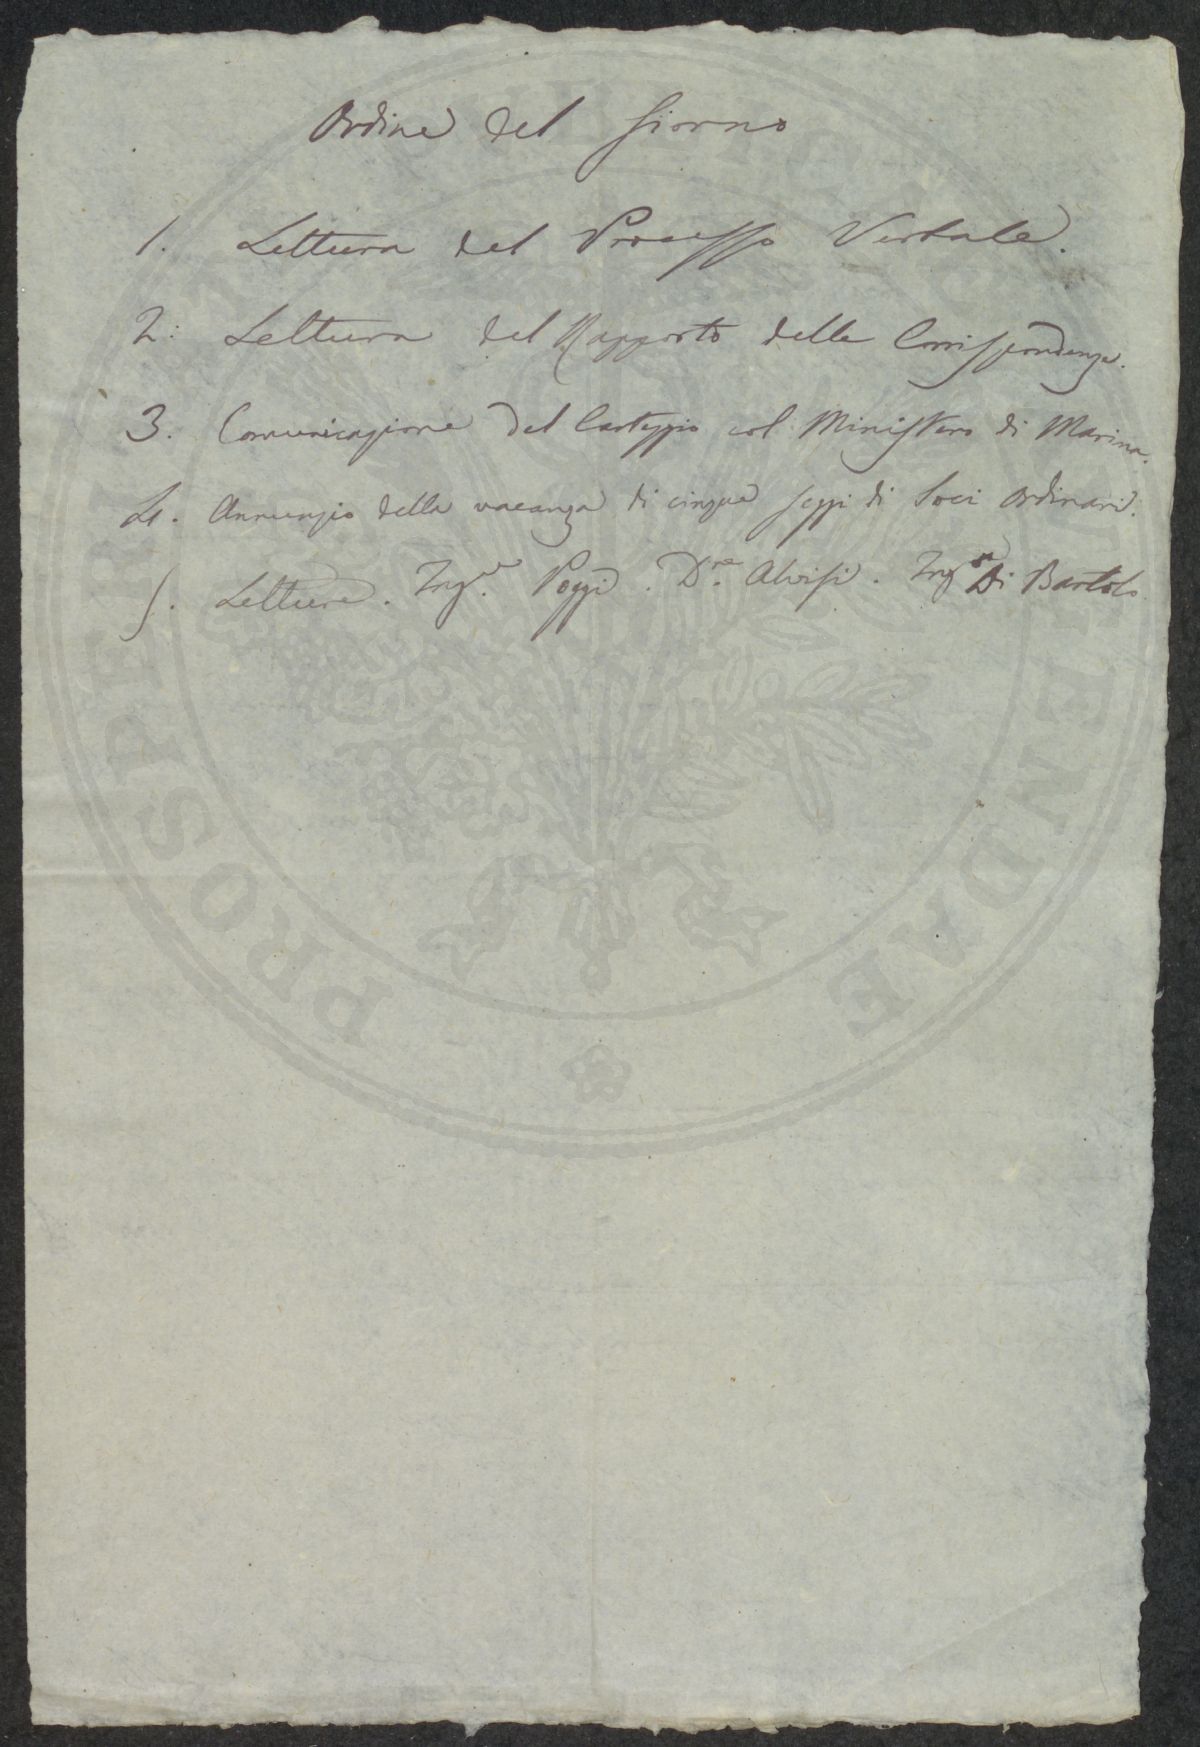 Ordine del Giorno
1. Lettura del Processo Verbale.
2. Lettura del Rapporto delle Corrispondenze.
3. Comunicazione del Carteggio col Ministero di Marina.
4. Annunzio della vacanza di cinque seggi di Soci Ordinari.
5. Letture. Ing.e Poggi. D.re Alvisi. Ing.re Di Bartolo
PROSPERITATI AUGENDAE